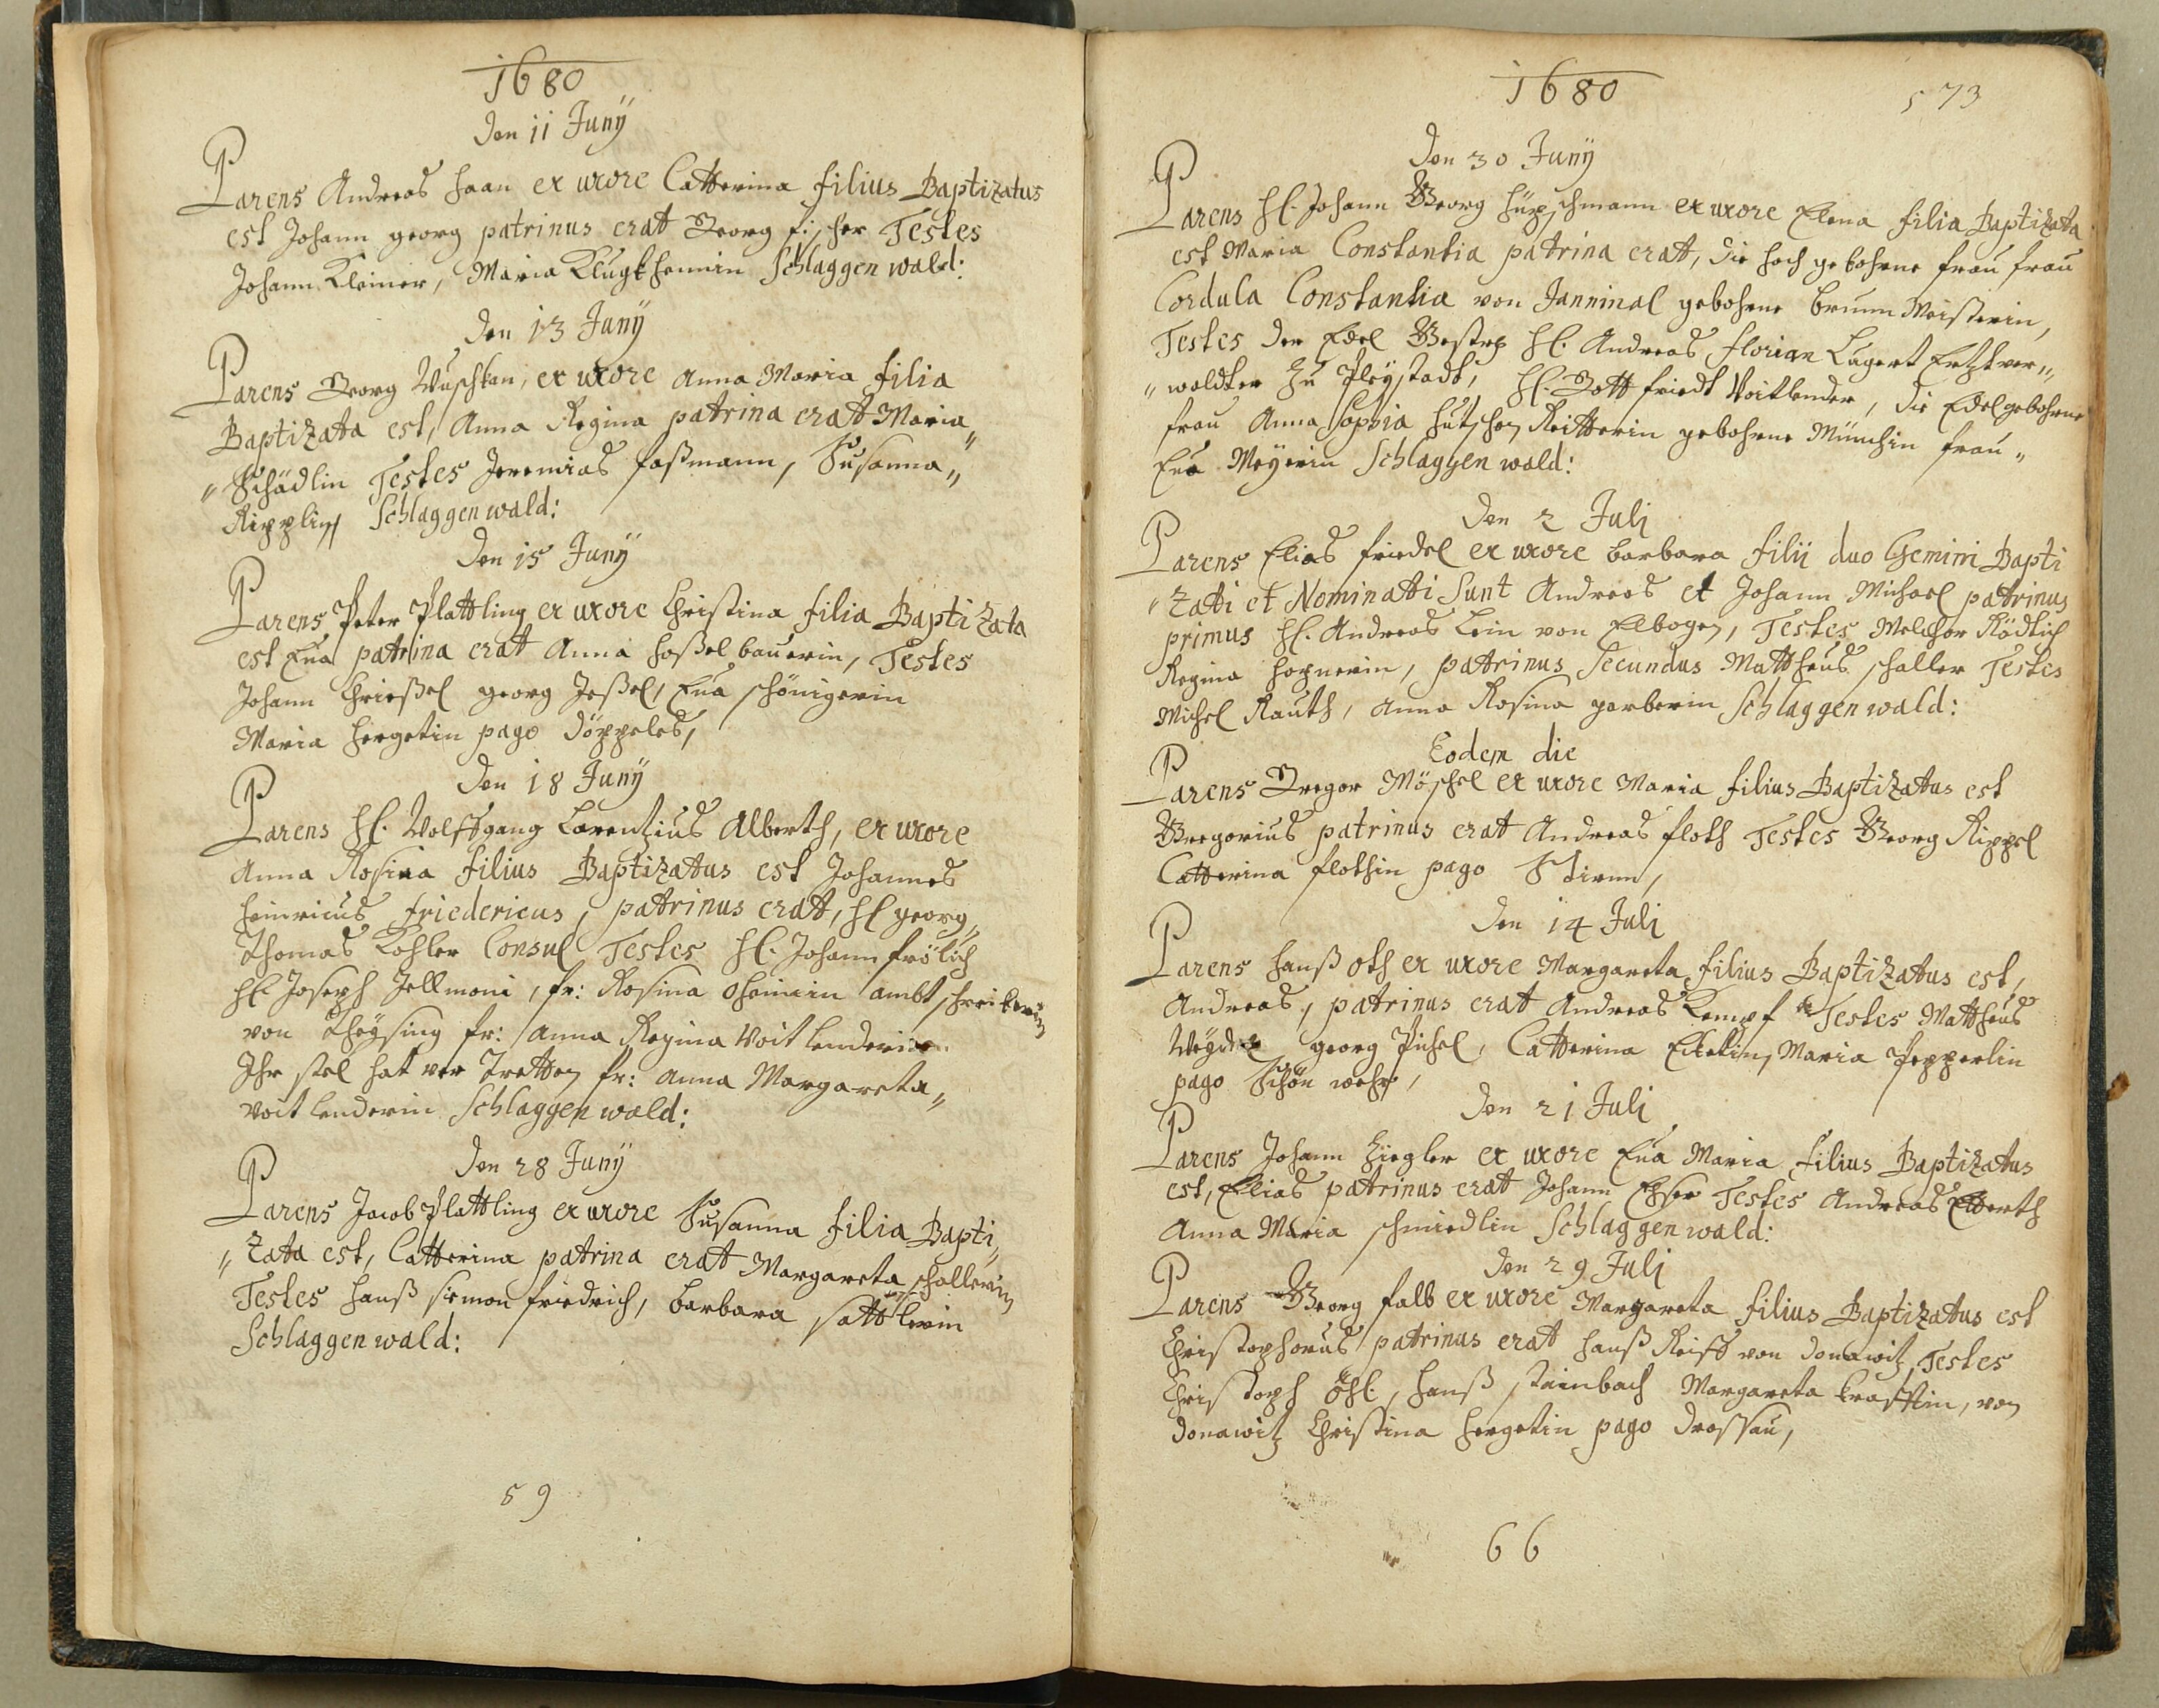 1680
Den 11 Junÿ
Parens Andreas Haan ex uxore Catterina filius Baptizatus
est Johann georg patrinus erat Georg fischer Testes
Johann Kleiner, Maria Klugkhennin Schlaggenwald:
Den 13 Junÿ
Parens Georg Wuschkan, ex uxore Anna Maria filia
Baptizata est, Anna Regina patrina erat Maria„
„Schädlin Testes Jeremias faßmann, Susanna„
Ripplin Schlaggenwald:
Den 15 Junÿ
Parens Peter Plattling ex uxore Christina filia Baptizata
est Eua patrina erat Anna Hoßelbauerin, Testes
Johann georg Jeßel, Eua schönigerin
Maria Hergetin pago döppeles,
Den 18 Junÿ
Parens Hl. Wolffgang Larentzius Alberth, ex uxore
Anna Rosina filius Baptizatus est Johannes
Heinricus Friedericus, patrinus erat, Hl georg„
Thomas Kohler Consul Testes Hl. Johann frölich
Hl Joseph Jellmoni, fr: Rosina ambtschreiberin
von Theÿsing fr: Anna Regina Voitlenderin
Ihr stel hat ver Tretten fr: Anna Margareta„
voitlenderin Schlaggenwald:
Den 28 Junÿ
Parens Jacob Plattling ex uxore Susanna filia Bapti„
„zata est, Catterina patrina erat Margareta schallerin
Testes Hanß simon friedrich, barbara sattlerin
Schlaggenwald:
59
1680
573
Den 30 Junÿ
Parens Hl. Johann Georg Hüpschmann ex uxore Elena filia Baptizata
est Maria Constantia patrina erat, die hoch gebohrne frau frau
Cordula Constantia von Janninal gebohrne brunn Meisterin,
Testes der Edel Gestrg Hl. Andreas florian Lagert Ertzver„
„waldter zu Pleÿstadt, Hl. Gottfriedt Voitlender, die Edelgebohrne
frau Anna Sophia Hutschen Reitterin gebohrne Münchin frau„
Eua Meÿerin Schlaggenwald:
Den 2 Julj
Parens Elias friedel ex uxore barbara filii duo Gemini Bapti
„zati et Nominatti Sunt Andreas et Johann Michael patrinus
primus Hl. Andreas Lein von Elbogen, Testes Melchor Rödlich
Regina Hopnerin, patrinus Secundus Mattheus schaller Testes
Michel Rauth, Anna Rosina garberin Schlaggenwald:
Eodem die
Parens Gregor Möschel ex uxore Maria filius Baptizatus est
Gregorius patrinus erat Andreas floth Testes Georg Rippel
Catterina flothin pago Stirnn,
Den 14 Julj
Parens Hanß oth ex uxore Margareta filius Baptizatus est,
Andreas, patrinus erat Andreas Kempf Testes Mattheus
georg Pichel, Catterina Eckelin, Maria Pepperlin
pago Schön wehr,
Den 21 Julj
Parens Johann Ziegler ex uxore Eua Maria filius Baptizatus
est, Elias patrinus erat Johann Testes Andreas Elberth
Anna Maria schmiedlin Schlaggenwald:
Den 29 Julj
Parens Georg falb ex uxore Margareta filius Baptizatus est
Christophorus patrinus erat Hanß Reiff von donawitz, Testes
Christoph Hanß stainbach Margareta krafftin, von
donawitz Christina Hergetin pago drossau,
66